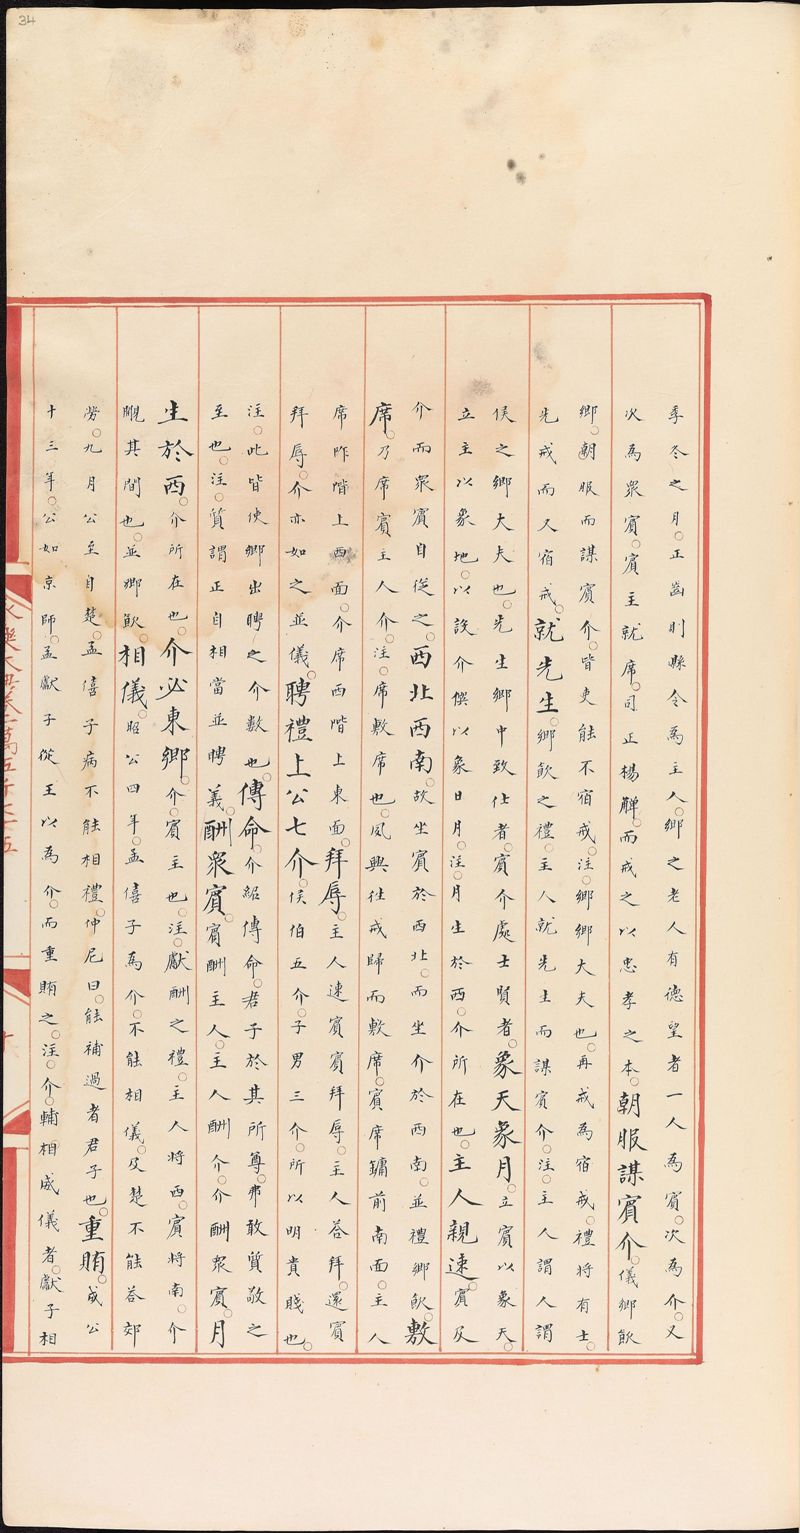 34
季冬之月。正齒則縣令為主人。鄉之老人有德望者一人為賓。次為介。又
次為衆賓。賓主就席。司正楊觶。而戒之以忠孝之本。朝服謀賓介。儀鄉飲
鄉。朝服而謀賓介。皆吏能不宿戒。注。鄉鄉大夫也。再戒為宿戒。禮將有士。
先戒而又宿戒。就先生。鄉飲之禮。主人就先生而謀賓介。注。主人謂人謂
侯之鄉大夫也。先生鄉中致仕者。賓介處士賢者。象天象月。立賓以象天。
立主以象地。以設介僎以象日月。注。月生於西。介所在也。主人親速。賓及
介而衆賓自從之。西北西南。故坐賓於西北。而坐介於西南。並禮鄉飲。敷
席。乃席賓主人介。注。席敷席也。夙興往戒歸而敷席。賓席牖前南面。主人
席阼階上西面。介席西階上東面。拜辱。主人速賓賓拜辱。主人荅拜。還賓
拜辱。介亦如之並儀。聘禮上公七介。侯伯五介。子男三介。所以明貴賤也。
注。此皆使鄉出聘之介數也。傳命。介紹傳命。君子於其所尊。弗敢質敬之
至也。注。質謂正自相當並聘義。酬衆賓。賓酬主人。主人酬介。介酬衆賓。月
生於西。介所在也。介必東鄉。介。賓主也。注。獻酬之禮。主人將西。賓將南。介
覵其間也。並鄉飲。相儀。昭公四年。孟僖子為介。不能相儀。及楚不能荅郊
勞。九月公至自楚。孟僖子病不能相禮。仲尼曰。能補過者君子也。重賄。成公
十三年。公如京師。孟獻子從王以為介。而重賄之。注。介。輔相威儀者。獻子相